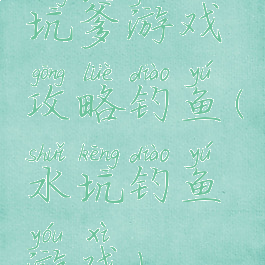 坑爹游戏
gōng lüè diào yú
攻略钓鱼(
shuǐ kēng diào yú
水坑钓鱼
yóu xì
游戏)